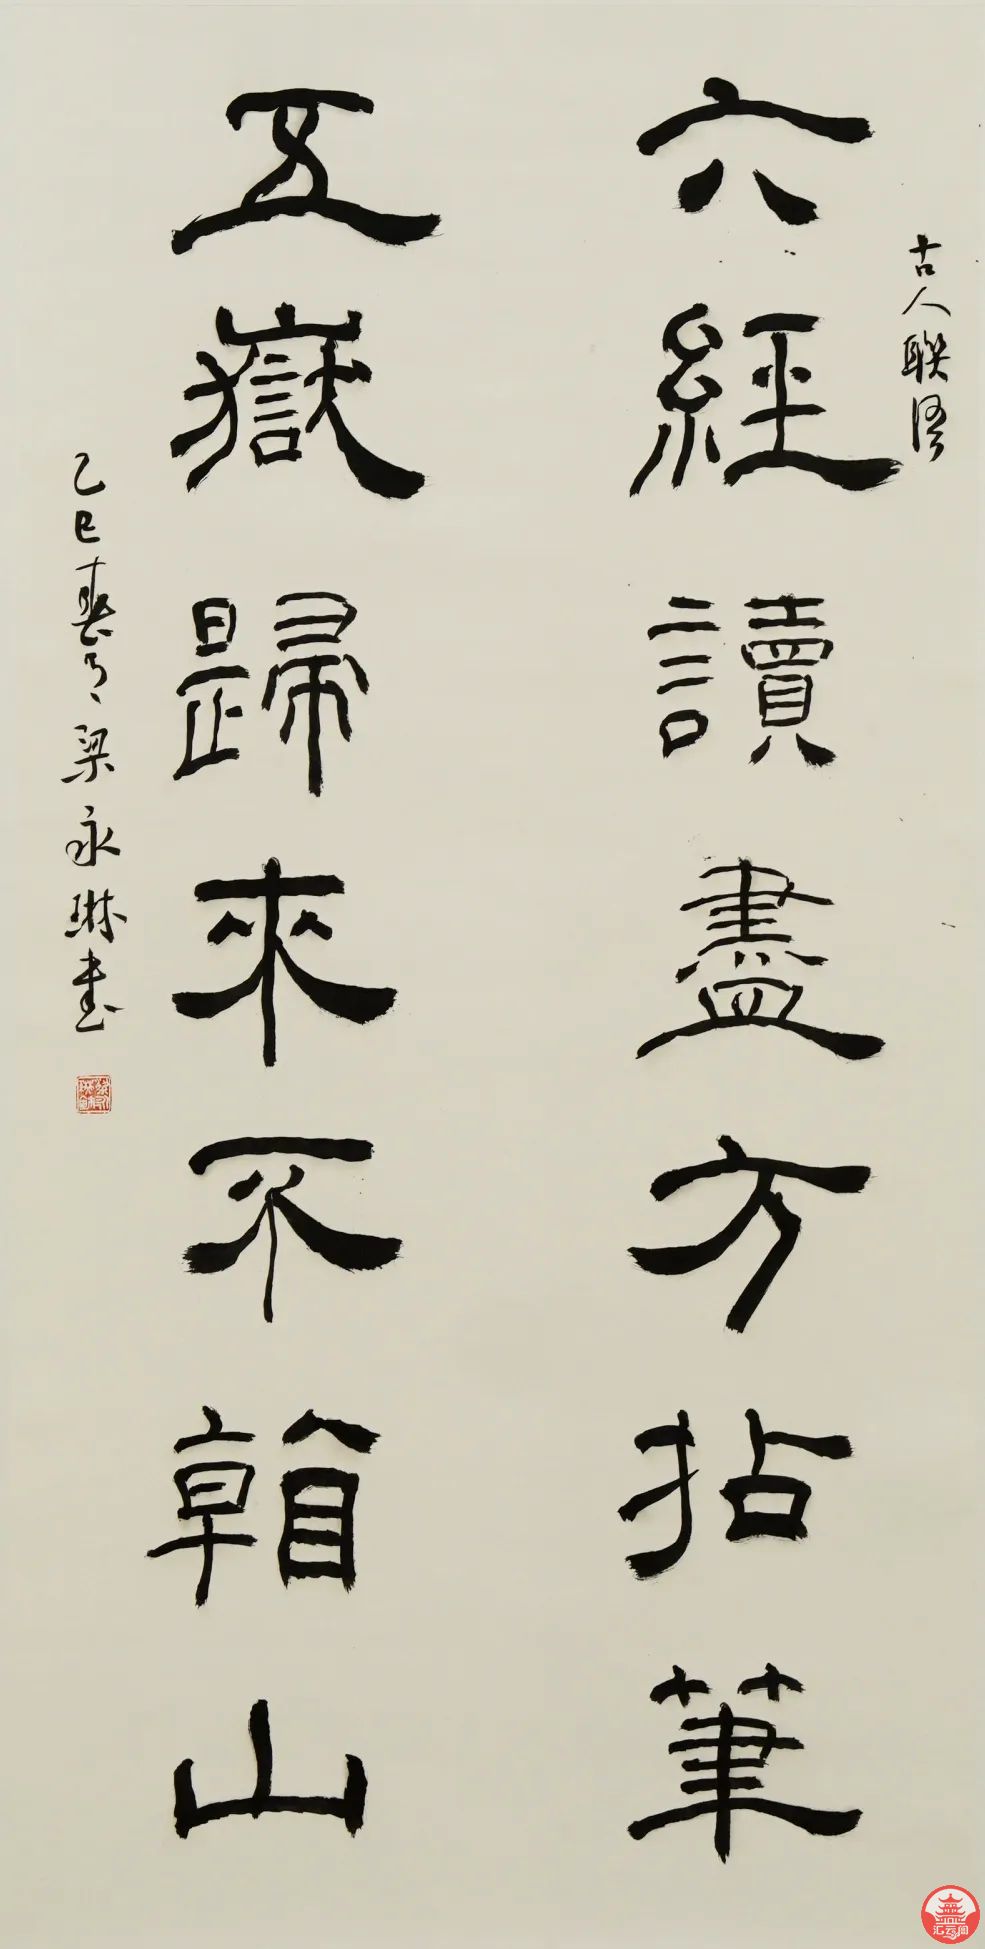 古人聯語
六經讀盡方拈筆
五嶽歸來不看山
乙巳春月梁永琳書
汇云阁